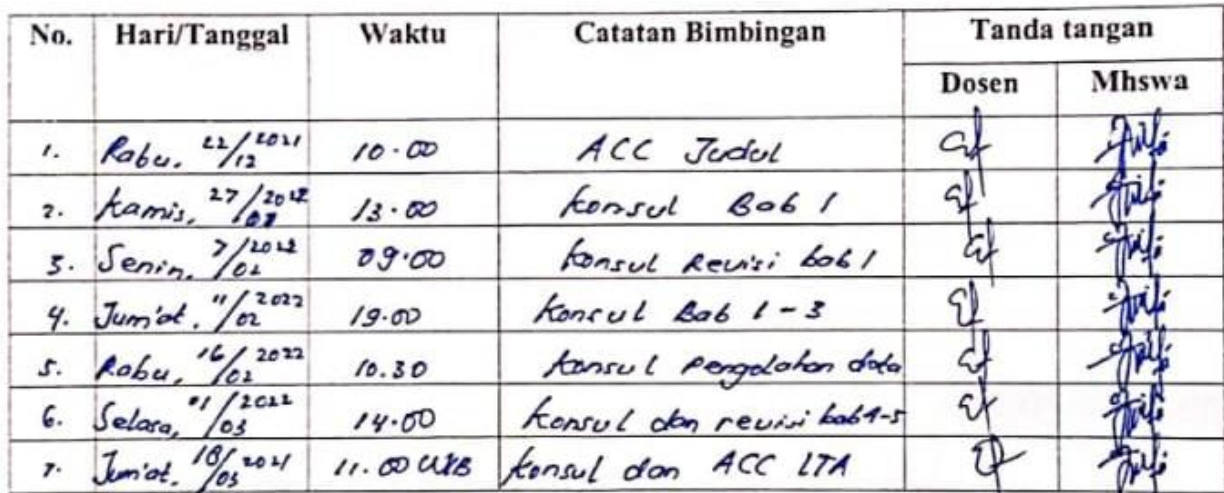 No. Hari/Tanggal Waktu Catatan Bimbingan Tanda tangan
Dosen Mhswa
1. Rabu, 22/12 2021 10.00 ACC Judul
2. Kamis, 27/01 2022 13.00 konsul Bab 1
3. Senin, 7/02 2022 09.00 konsul Revisi bab 1
4. Jum'at, 11/02 2022 19.00 Konsul Bab 1 - 3
5. Rabu, 16/02 2022 10.30 konsul Pengolahan data
6. Selasa, 01/03 2022 14.00 Konsul dan revisi bab 4-5
7. Jum'at, 18/03 2021 11.00 WIB konsul dan ACC LTA